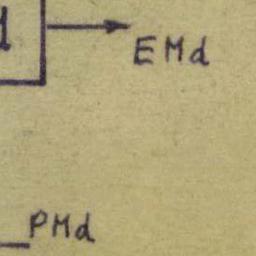 EMd
PMd